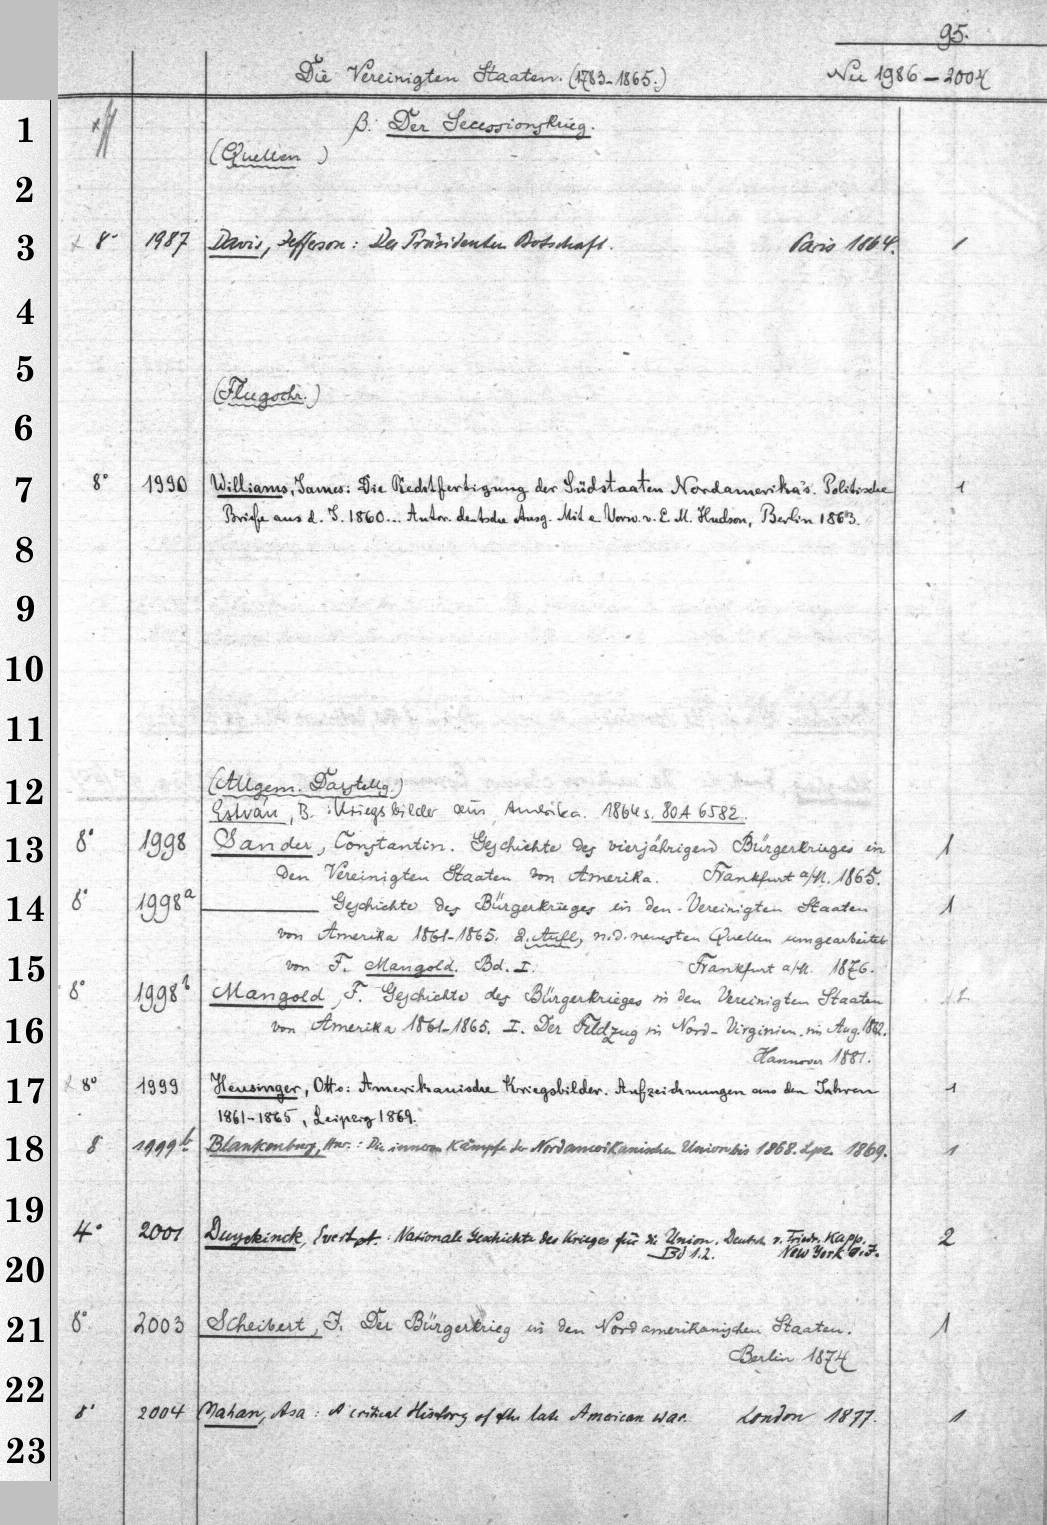 95.
Die Vereinigten Staaten. (1783-1865.) Nu 1986-2004
1 β. Der Secessionskrieg.
(Quellen )
2
3 8° 1987 Davis, Jefferson: Des Präsidenten Botschaft. Paris 1864. 1
4
5
(Flugschr.)
6
7 8° 1990 Williams, James: Die Rechtfertigung der Südstaaten Nordamerika's. Politische 1
Briefe aus d. J. 1860... Autor. deutsche Ausg. Mit e Vorw. v. E. M. Hudson, Berlin 1863.
8
9
10
11
12 (Allgem. Darstellg.)
Estván, B.: Kriegsbilder aus Amerika. 1864 s. 80A 6582.
13 8° 1998 Sander, Constantin. Geschichte des vierjährigen Bürgerkrieges in 1
den Vereinigten Staaten von Amerika. Frankfurt a/M. 1865.
14 8° 1998a Geschichte des Bürgerkrieges in den Vereinigten Staaten 1
von Amerika 1861-1865. 2. Aufl., n. d. neuesten Quellen umgearbeitet
15 von F. Mangold. Bd. I. Frankfurt a/M. 1876.
8° 1998b Mangold, F. Geschichte des Bürgerkrieges in den Vereinigten Staaten
16 von Amerika 1861-1865. I. Der Feldzug in Nord-Virginien im Aug. 1862.
Hannover 1881.
17 8° 1999 Heusinger, Otto: Amerikanische Kriegsbilder. Aufzeichnungen aus den Jahren 1
1861-1865, Leipzig 1869.
18 8 1999b Blankenburg, Hnr.: Die inneren Kämpfe der Nordamerikanischen Union bis 1868. Lpz. 1869. 1
19
4° 2001 Duyckinck, Evert A.: Nationale Geschichte des Krieges für die Union. Deutsch v. Friedr. Kapp. 2
Bd 1.2. New York o. J.
20
21 8° 2003 Scheibert, J. Der Bürgerkrieg in den Nordamerikanischen Staaten. 1
Berlin 1874
22
8° 2004 Mahan, Asa: A critical History of the late American war. London 1877. 1
23